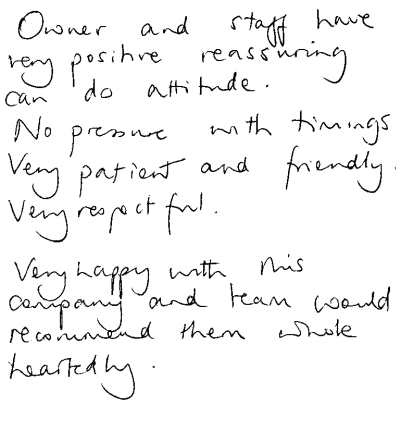 Owner and staff have
very positive reassuring
can do attitude.
No pressure with timings
Very patient and friendly.
Very respectful.
Very happy with this
company and team would
recommend them whole
heartedly.